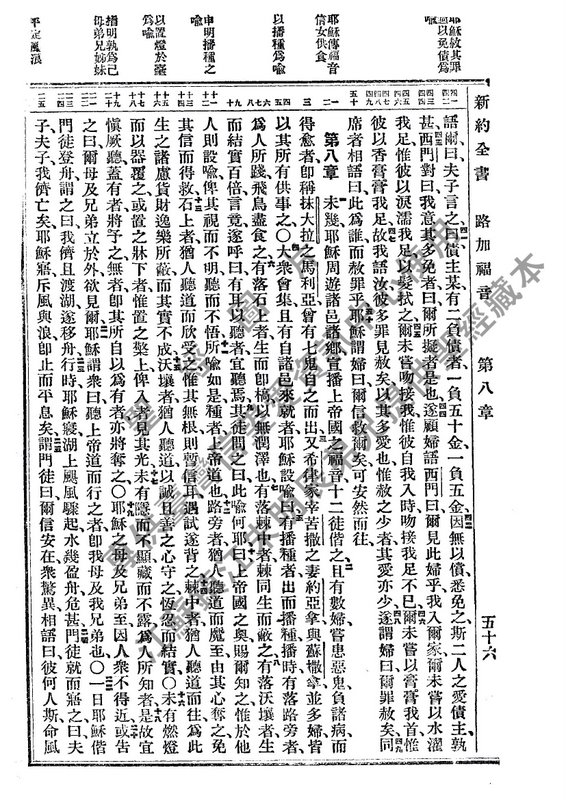 新約全書 路加福音 第八章 五十六
耶穌赦其罪
何以免債爲
喻
耶穌傳福音
信女供食
以播種爲喻
申明播種之
喻
以置燈於臺
爲喻
指明孰爲己
母弟兄姊妹
平定風浪
語爾曰夫子言之曰債主某有二負債者一負五十金一負五金因無以償悉免之斯二人之愛債主孰
甚西門對曰我意其多免者曰爾所擬者是也遂顧婦語西門曰爾見此婦乎我入爾家爾未嘗以水濯
我足惟彼以淚濡我足以髮拭之爾未嘗吻接我惟彼自我入時吻接我足不已爾未嘗以膏膏我首惟
彼以香膏膏我足故我語汝彼多罪見赦矣以其多愛也惟赦之少者其愛亦少遂謂婦曰爾罪赦矣同
席者相語曰此爲誰而赦罪乎耶穌謂婦曰爾信救爾矣可安然而往
第八章 未幾耶穌周遊諸邑諸鄉宣播上帝國之福音十二徒偕之且有數婦嘗患惡鬼負諸病而
得愈者卽稱抹大拉馬利亞曾有七鬼自之而出又希律家宰苦撒之妻約亞拿與蘇撒拿並多婦皆
以其所有供事之〇大衆會集且有自諸邑來就者耶穌設喻曰有播種者出而播種播時有落路旁者
爲人所踐飛鳥盡食之有落石上者生而卽槁以無潤澤也有落棘中者棘同生而蔽之有落沃壤者生
而結實百倍言竟遂呼曰有耳以聽者宜聽焉其徒問之曰此喻何耶曰上帝國之奧賜爾知之惟於他
人則設喻俾其視而不明聽而不悟所喻如是種者上帝道也路旁者猶人聽道而魔至由其心奪之免
其信而得救石上者猶人聽道而欣受之惟其無根則暫信耳遇試遂背之棘中者猶人聽道而往爲此
生之諸慮貨財逸樂所蔽而其實不成沃壤者猶人聽道以誠且善之心守之恆忍結實〇未有燃燈
而以器覆之或置之牀下者惟置之檠上俾入者見其光未有隱而不顯藏而不露爲人所知者是故宜
愼厥聽蓋有者將予之無者卽其所自以爲有者亦將奪之〇耶穌之母及兄弟至因人衆不得近或告
之曰爾母及兄弟立於外欲見爾耶穌謂衆曰聽上帝道而行之者卽我母及我兄弟也〇一日耶穌偕
門徒登舟謂之曰我儕且渡湖遂移舟行時耶穌寢湖上颶風驟起水幾盈舟危甚門徒就而寤之曰夫
子夫子我儕亡矣耶穌寤斥風與浪卽止而平息矣謂門徒曰爾信安在衆驚異相語曰彼何人斯命風